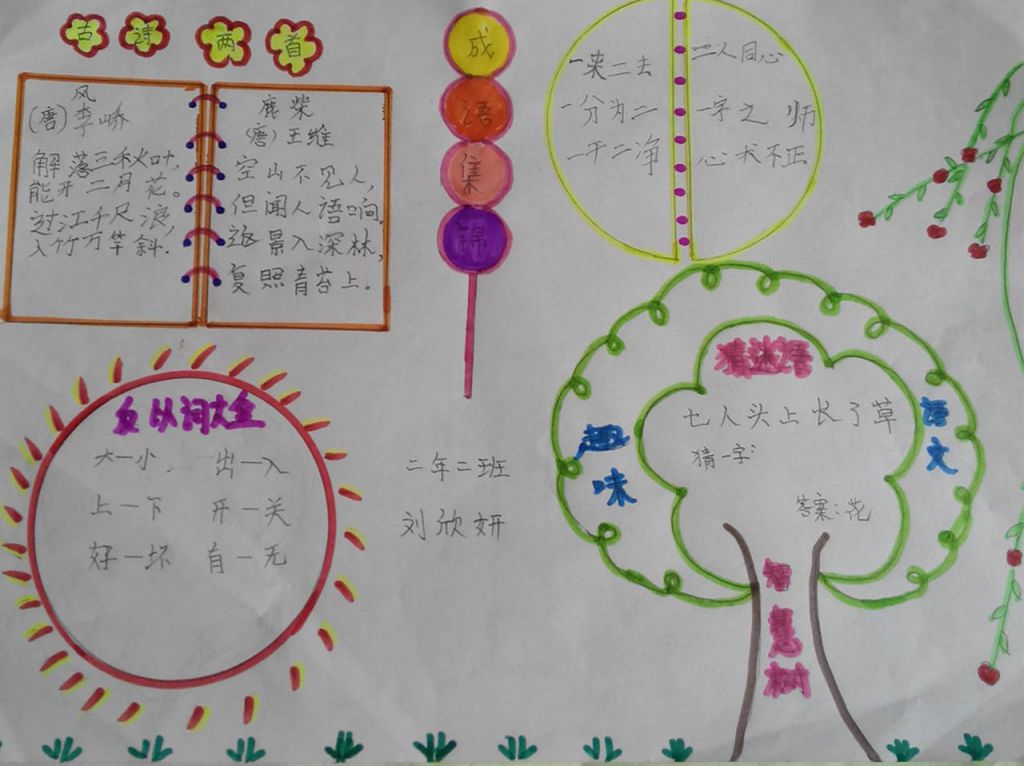 古诗两首
风
(唐)李峤
解落三秋叶,
能开二月花。
过江千尺浪,
入竹万竿斜.
鹿柴
(唐)王维
空山不见人,
但闻人语响.
返景入深林,
复照青苔上.
成语集锦
一来二去
一分为二
一干二净
二人同心
一字之师
心术不正
反以词大全
大一小. 出一入
上一下 开一关
好一坏 有一无
二年二班
刘欣妍
趣味
语文
猜迷语
七人头上长了草
猜一字:
答案:花
智慧树